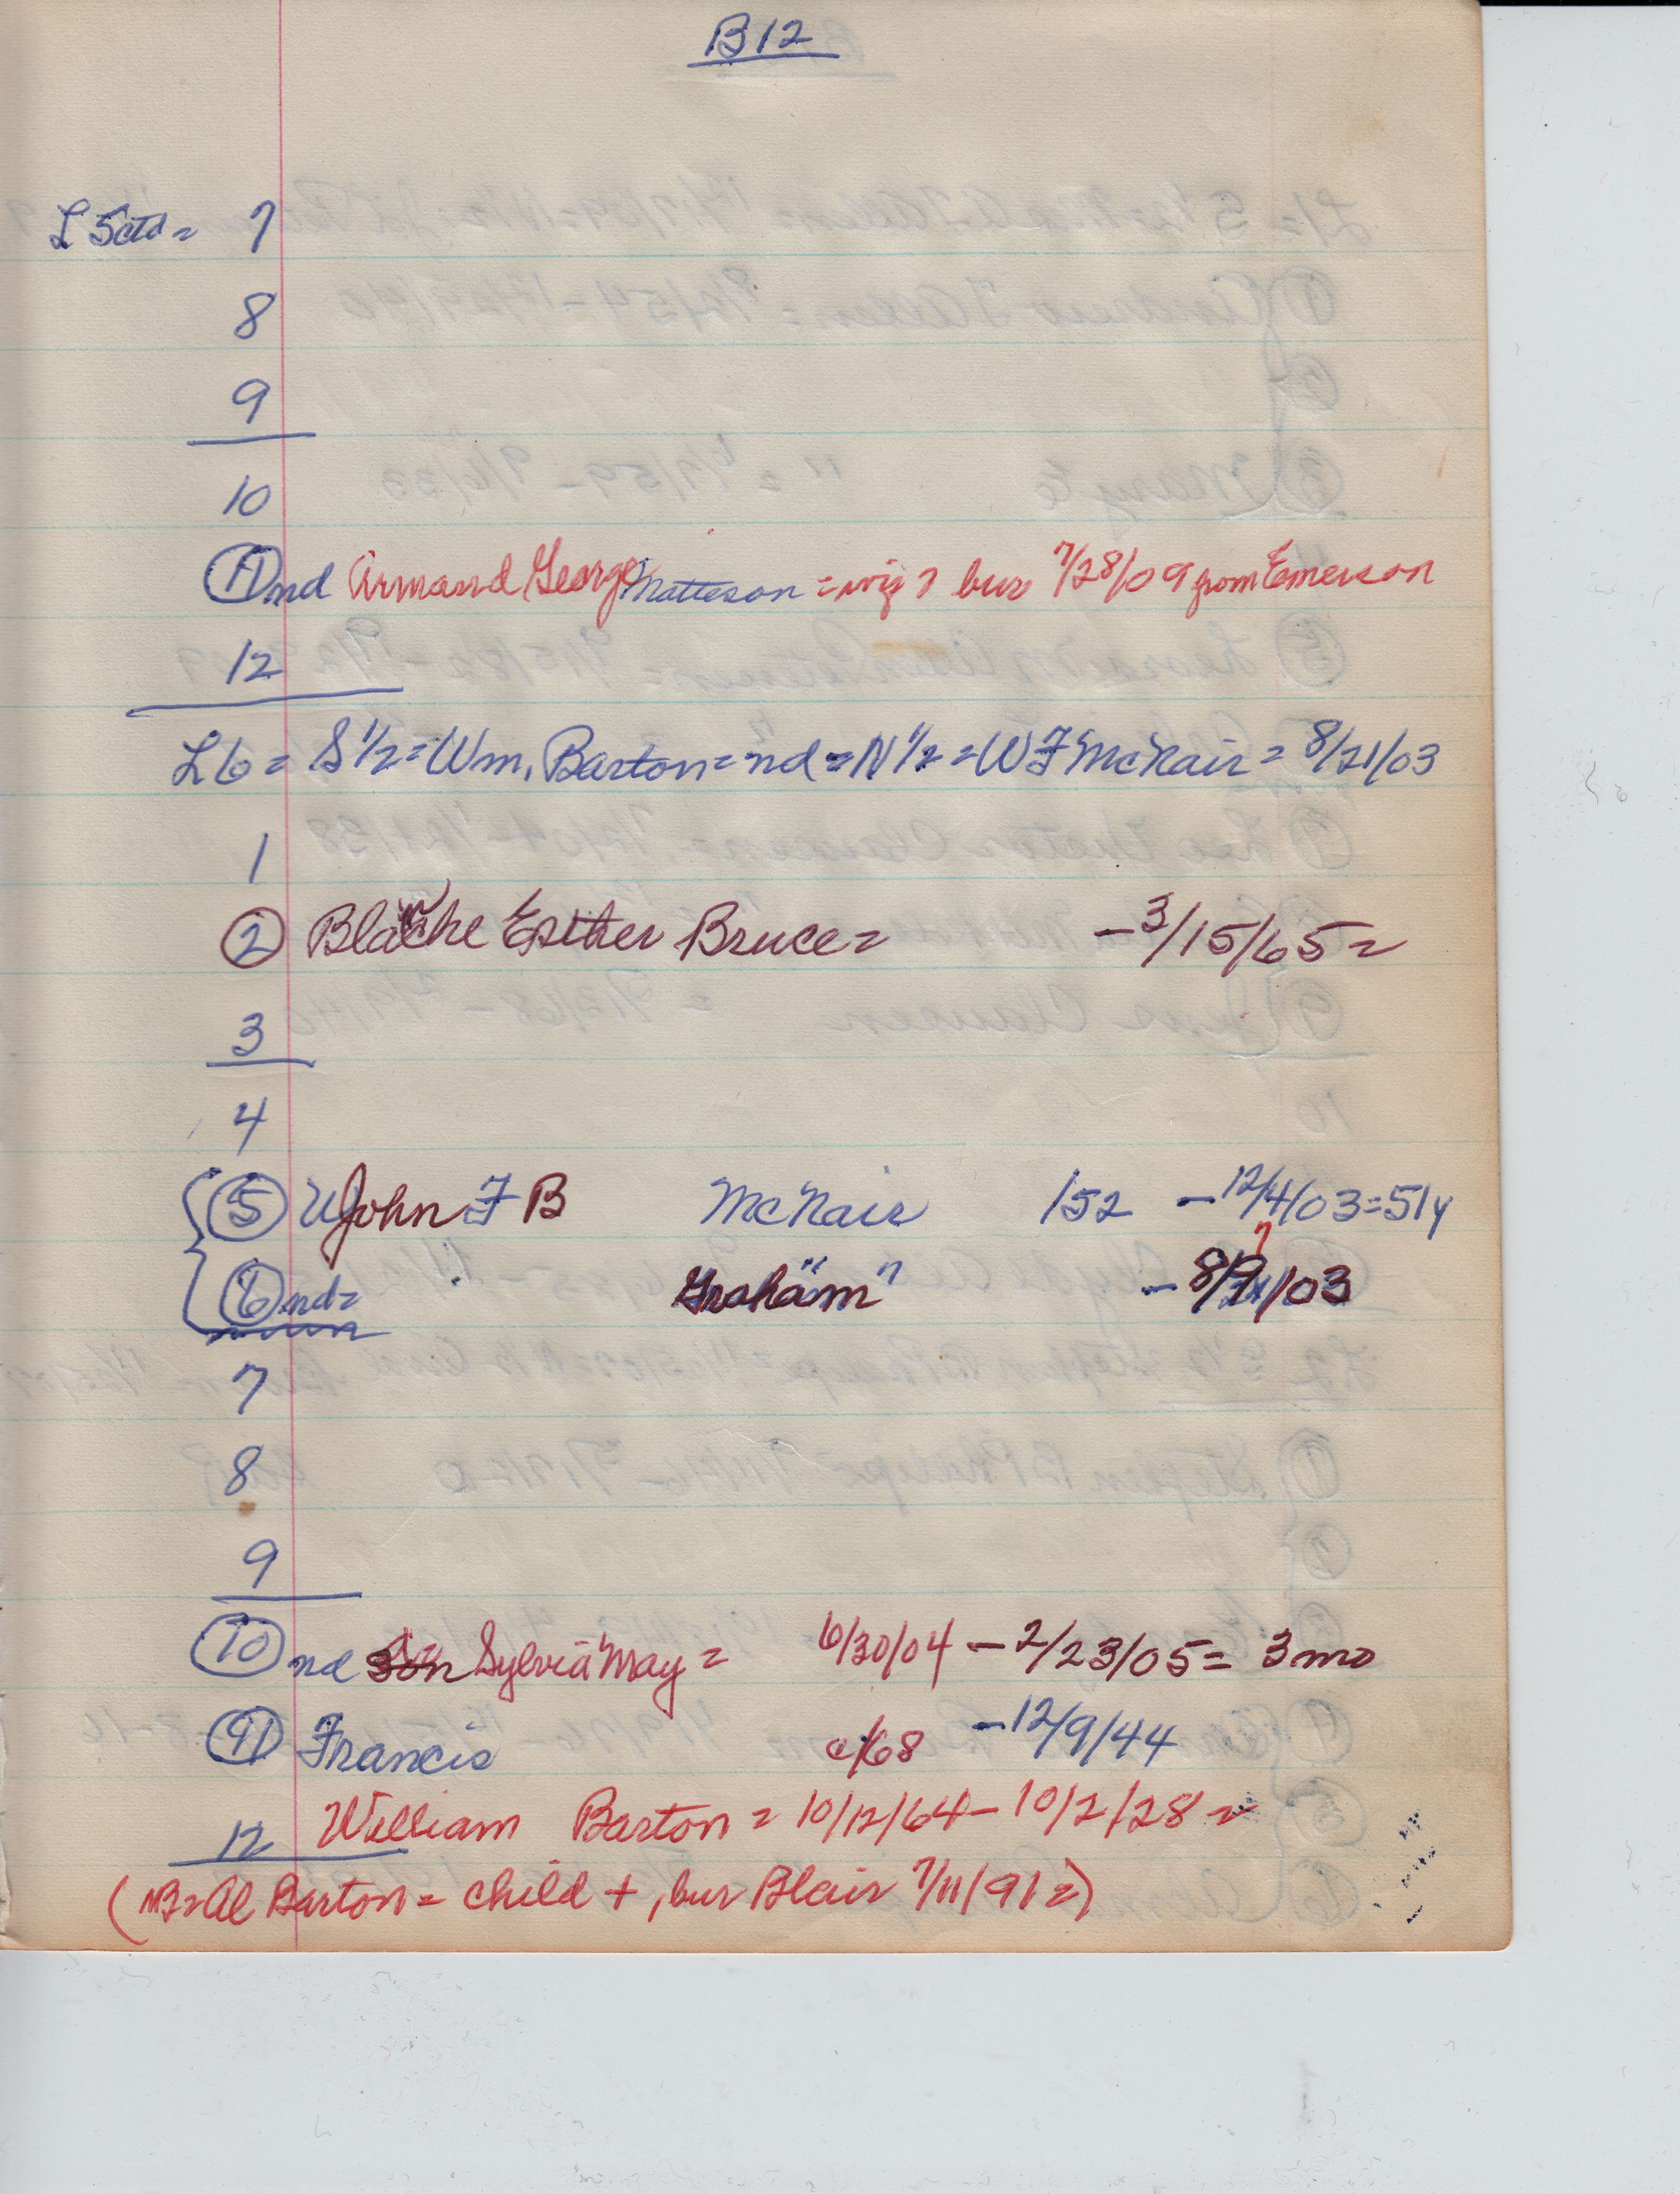 B12
L 5ctd = 7
8
9
10
11 nd Armand George Matteson = bur 7/28/09 from Emerson
12
L6 = S 1/2 = Wm. Barton = nd = N 1/2 = W F McNair = 8/21/03
1
2 Blanche Esther Bruce = - 3/15/65 =
3
4
5 John F B McNair 152 - 12/4/03 = 51y
6 nd = Graham " - 8/ /03
7
8
9
10 nd Son Sylvia May = 6/30/04 - 2/23/05 = 3 mo
11 Francis c/68 - 12/9/44
12 William Barton = 10/12/64 - 10/2/28 =
(NB = Al Barton = child +, bur Blair 7/11/91 =)